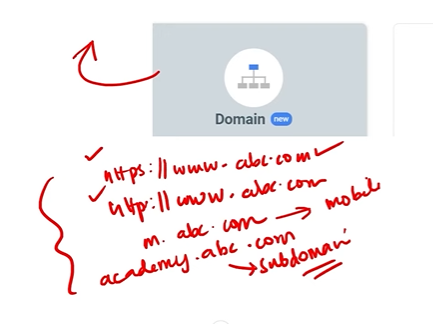 Domain new
https://www.abc.com
http://www.abc.com
m.abc.com → mobile
academy.abc.com
→ subdomain